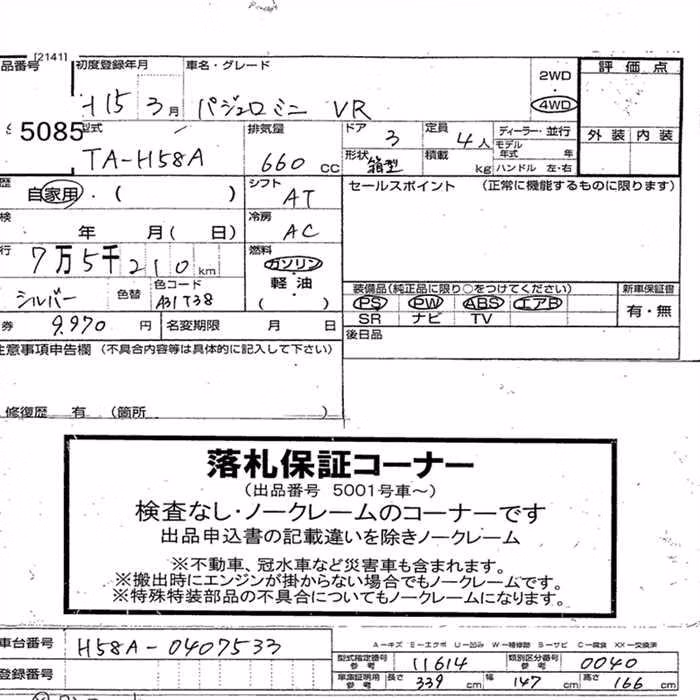 [2141]
品番号 初度登録年月 車名・グレード 2WD 評価点
H15 3月 パジェロミニ VR 4WD
5085 型式 排気量 ドア 定員 ディーラー・並行 外装 内装
TA-H58A 660cc 3 4人 モデル年式 年
形状 箱型 積載 kg ハンドル 左・右
歴 自家用・( ) シフト AT セールスポイント (正常に機能するものに限ります)
検 年 月( 日) 冷房 AC
行 7万5千210km 燃料 ガソリン
軽油
( )
シルバー 色替 色コード A31T38
装備品(純正品に限り○をつけてください) 新車保証書
PS PW ABS エアB 有・無
SR ナビ TV
券 9,970円 名変期限 月 日 後日品
注意事項申告欄 (不具合内容等は具体的に記入して下さい)
修復歴 有 (箇所 )
落札保証コーナー
(出品番号 5001号車～)
検査なし・ノークレームのコーナーです
出品申込書の記載違いを除きノークレーム
※不動車、冠水車など災害車も含まれます。
※搬出時にエンジンが掛からない場合でもノークレームです。
※特殊特装部品の不具合についてもノークレームになります。
車台番号 H58A-0407533
A－キズ E－エクボ U－凹み W－補修跡 S－サビ C－腐食 XX－交換済
型式指定番号参考 11614 類別区分番号参考 0040
登録番号 車庫証明用参考 長さ 339cm 幅 147cm 高さ 166cm